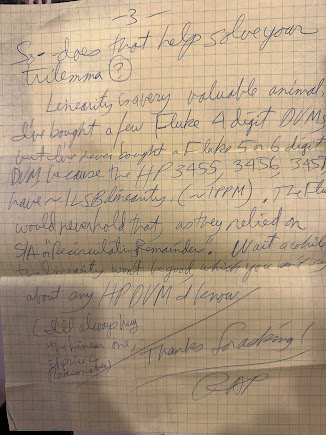 -3-
So -- does that help solve your
trilemma ?
Linearity is a very valuable animal.
I've bought a few Fluke 4 digit DVMs
but I've never bought a Fluke 5 or 6 digit
DVM because the HP 3455, 3456, 3457
have ~1LSB linearity. (~1PPM). The Flu
would never hold that, as they relied on
"Recirculating Remainder". Wait a while
the linearity won't be good, which you can't say
about any HP DVM I know
(I'll always buy
the linear one,
if price is
reasonable)
Thanks for asking!
RAP